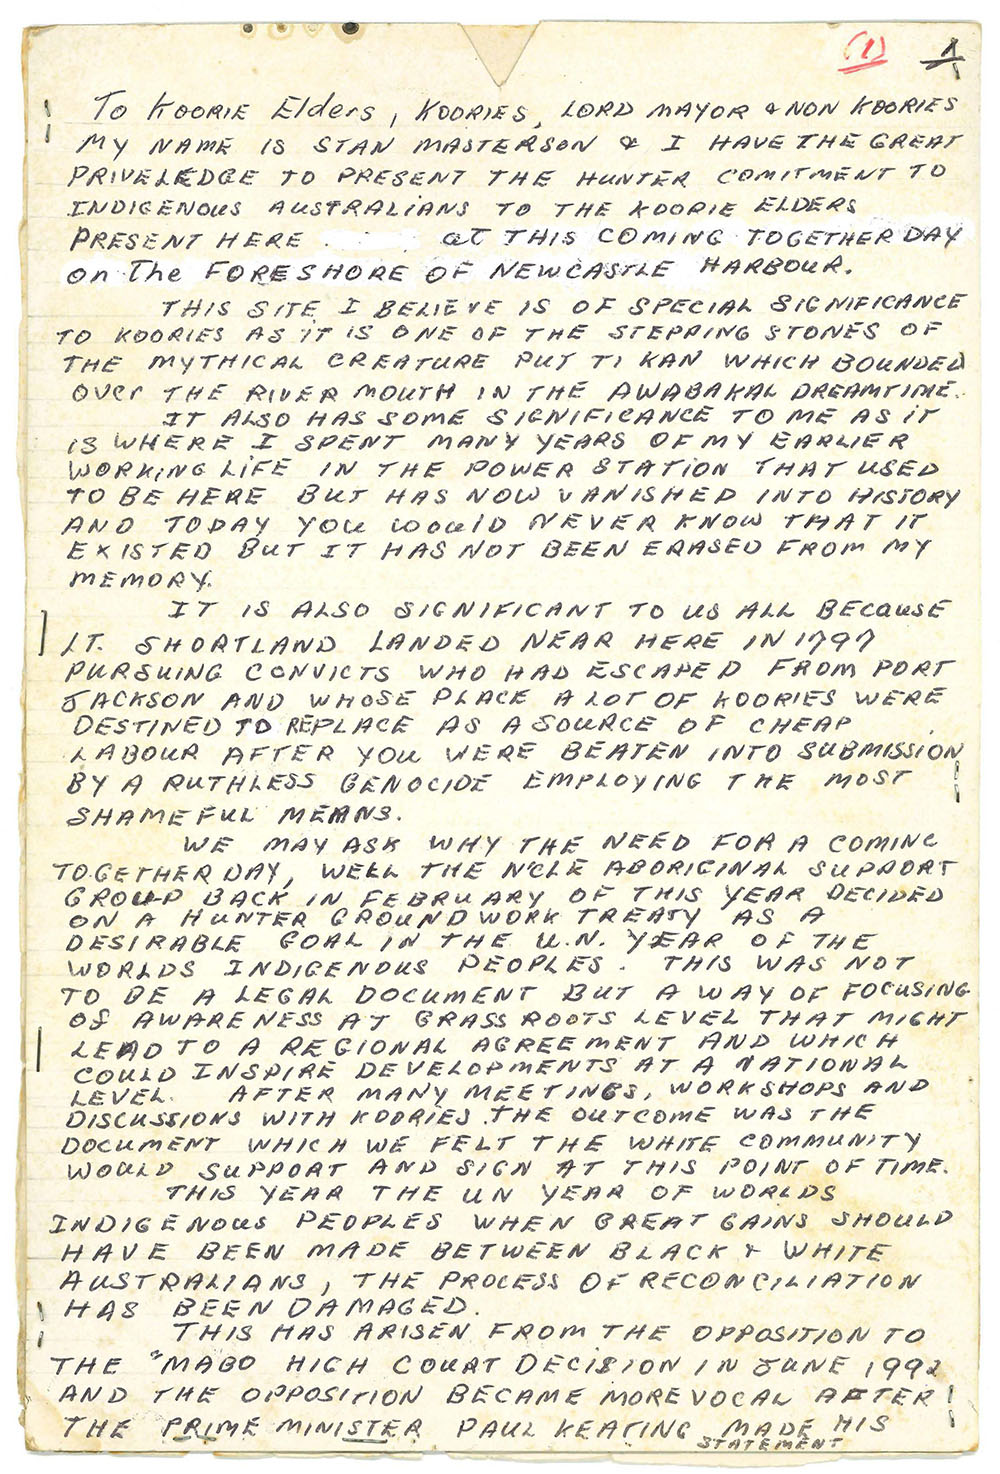 (1) 1
To KOORIE Elders, KOORIES, LORD MAYOR & NON KOORIES
MY NAME IS STAN MASTERSON & I HAVE THE GREAT
PRIVELEDGE TO PRESENT THE HUNTER COMITMENT TO
INDIGENOUS AUSTRALIANS TO THE KOORIE ELDERS
PRESENT HERE at THIS COMING TOGETHER DAY
on The FORESHORE OF NEWCASTLE HARBOUR.
THIS SITE I BELIEVE IS OF SPECIAL SIGNIFICANCE
TO KOORIES AS IT IS ONE OF THE STEPPING STONES OF
THE MYTHICAL CREATURE PUT TI KAN WHICH BOUNDED
OVER THE RIVER MOUTH IN THE AWABAKAL DREAMTIME.
IT ALSO HAS SOME SIGNIFICANCE TO ME AS IT
IS WHERE I SPENT MANY YEARS OF MY EARLIER
WORKING LIFE IN THE POWER STATION THAT USED
TO BE HERE BUT HAS NOW VANISHED INTO HISTORY
AND TODAY YOU WOULD NEVER KNOW THAT IT
EXISTED BUT IT HAS NOT BEEN ERASED FROM MY
MEMORY.
IT IS ALSO SIGNIFICANT TO US ALL BECAUSE
LT. SHORTLAND LANDED NEAR HERE IN 1797
PURSUING CONVICTS WHO HAD ESCAPED FROM PORT
JACKSON AND WHOSE PLACE A LOT OF KOORIES WERE
DESTINED TO REPLACE AS A SOURCE OF CHEAP
LABOUR AFTER YOU WERE BEATEN INTO SUBMISSION
BY A RUTHLESS GENOCIDE EMPLOYING THE MOST
SHAMEFUL MEANS.
WE MAY ASK WHY THE NEED FOR A COMING
TOGETHER DAY, WELL THE N'CLE ABORIGINAL SUPPORT
GROUP BACK IN FEBRUARY OF THIS YEAR DECIDED
ON A HUNTER GROUNDWORK TREATY AS A
DESIRABLE GOAL IN THE U.N. YEAR OF THE
WORLDS INDIGENOUS PEOPLES. THIS WAS NOT
TO BE A LEGAL DOCUMENT BUT A WAY OF FOCUSING
OF AWARENESS AT GRASS ROOTS LEVEL THAT MIGHT
LEAD TO A REGIONAL AGREEMENT AND WHICH
COULD INSPIRE DEVELOPMENTS AT A NATIONAL
LEVEL. AFTER MANY MEETINGS, WORKSHOPS AND
DISCUSSIONS WITH KOORIES THE OUTCOME WAS THE
DOCUMENT WHICH WE FELT THE WHITE COMMUNITY
WOULD SUPPORT AND SIGN AT THIS POINT OF TIME.
THIS YEAR THE UN YEAR OF WORLDS
INDIGENOUS PEOPLES WHEN GREAT GAINS SHOULD
HAVE BEEN MADE BETWEEN BLACK & WHITE
AUSTRALIANS, THE PROCESS OF RECONCILIATION
HAS BEEN DAMAGED.
THIS HAS ARISEN FROM THE OPPOSITION TO
THE "MABO HIGH COURT DECISION IN JUNE 1992
AND THE OPPOSITION BECAME MORE VOCAL AFTER
THE PRIME MINISTER PAUL KEATING MADE HIS
STATEMENT